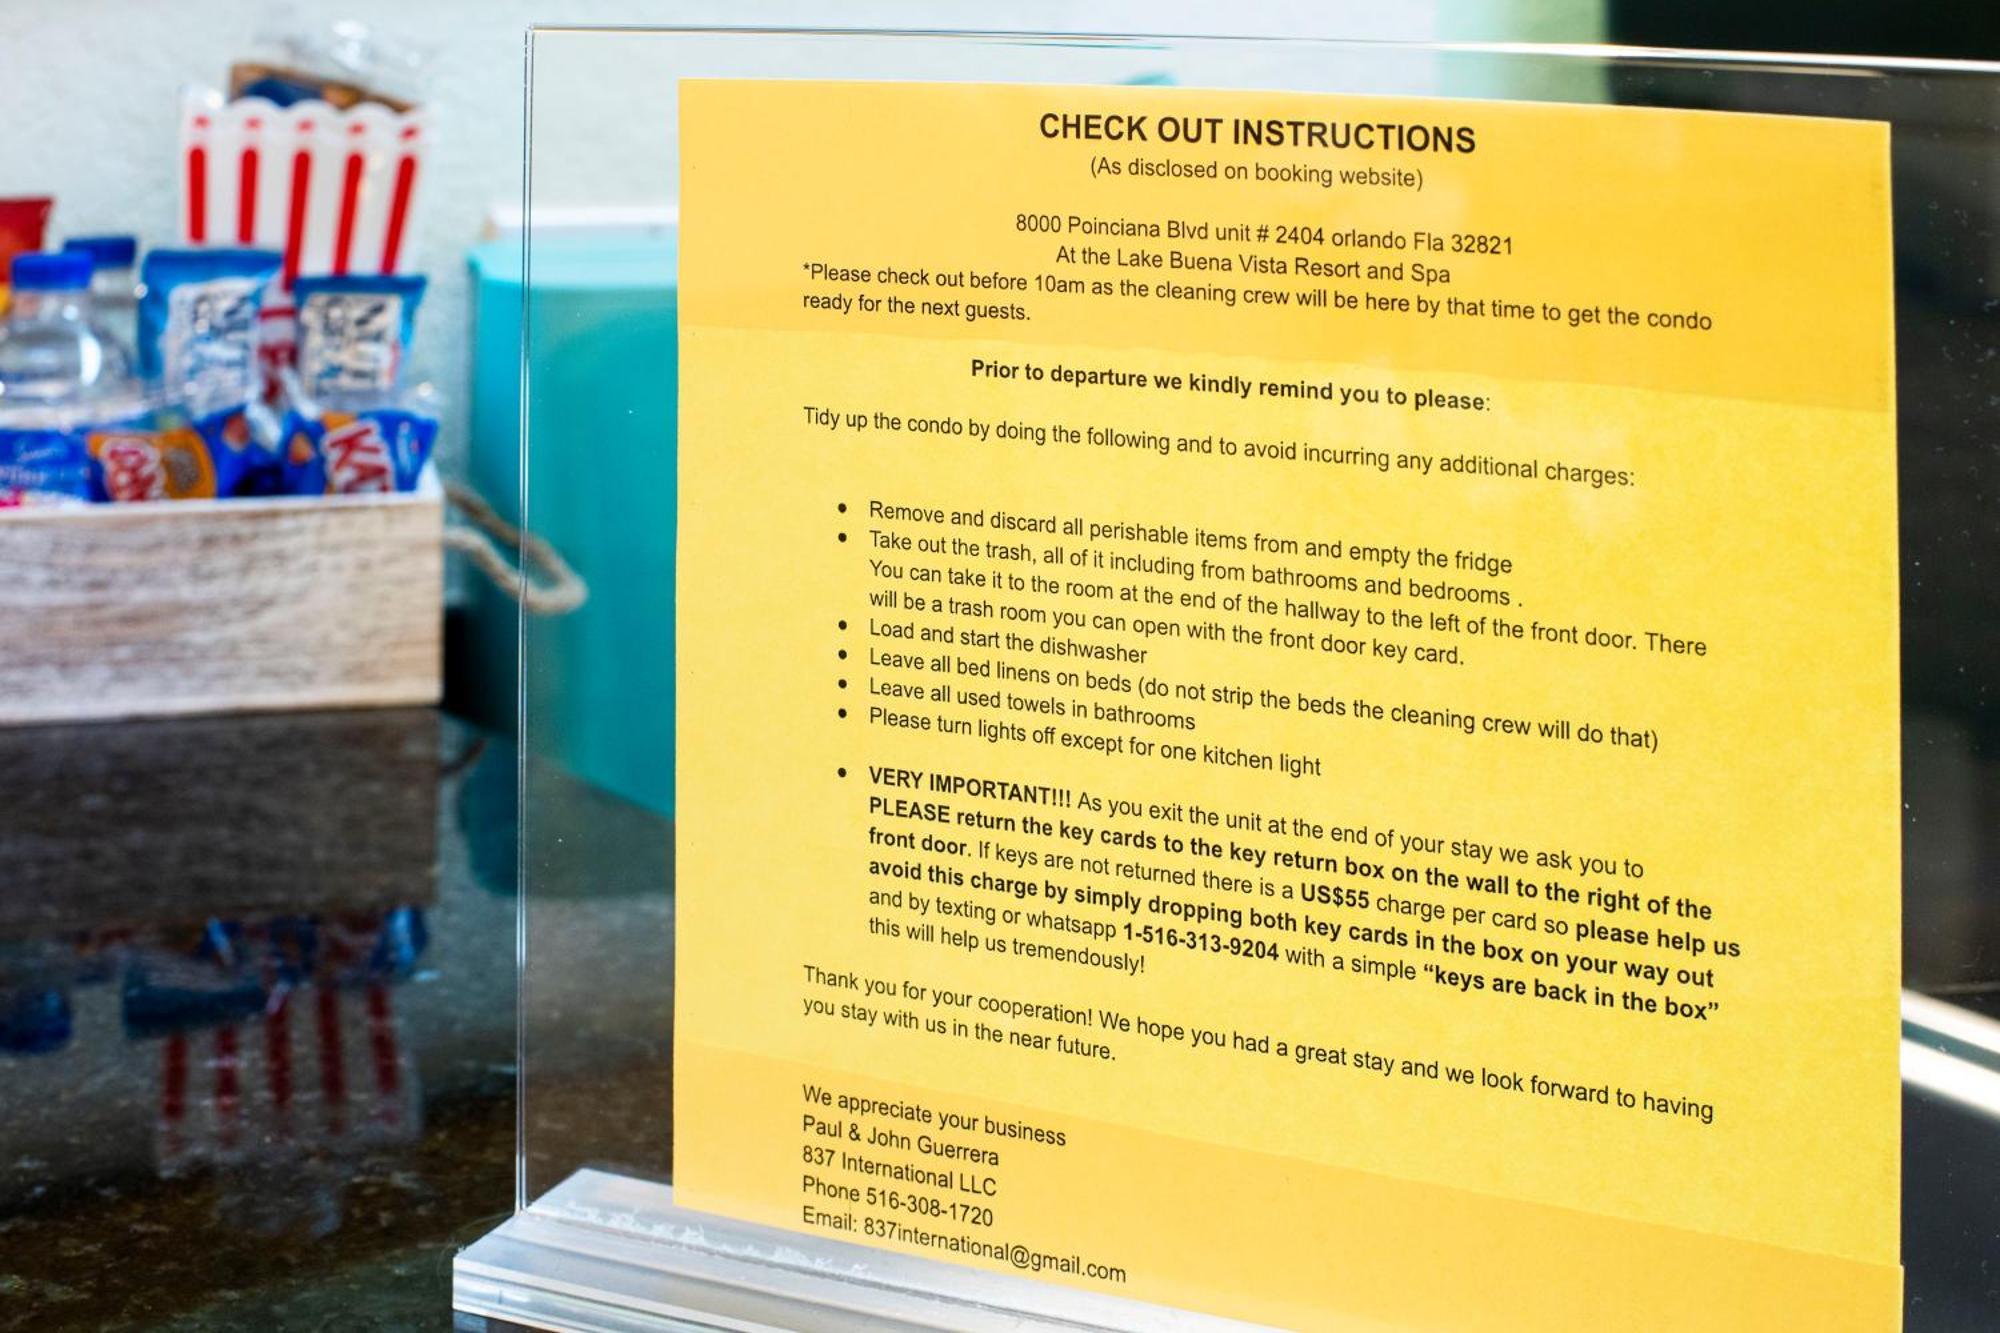 CHECK OUT INSTRUCTIONS
(As disclosed on booking website)
8000 Poinciana Blvd unit # 2404 orlando Fla 32821
At the Lake Buena Vista Resort and Spa
*Please check out before 10am as the cleaning crew will be here by that time to get the condo
ready for the next guests.
Prior to departure we kindly remind you to please:
Tidy up the condo by doing the following and to avoid incurring any additional charges:
• Remove and discard all perishable items from and empty the fridge
• Take out the trash, all of it including from bathrooms and bedrooms .
You can take it to the room at the end of the hallway to the left of the front door. There
will be a trash room you can open with the front door key card.
• Load and start the dishwasher
• Leave all bed linens on beds (do not strip the beds the cleaning crew will do that)
• Leave all used towels in bathrooms
• Please turn lights off except for one kitchen light
• VERY IMPORTANT!!! As you exit the unit at the end of your stay we ask you to
PLEASE return the key cards to the key return box on the wall to the right of the
front door. If keys are not returned there is a US$55 charge per card so please help us
avoid this charge by simply dropping both key cards in the box on your way out
and by texting or whatsapp 1-516-313-9204 with a simple “keys are back in the box”
this will help us tremendously!
Thank you for your cooperation! We hope you had a great stay and we look forward to having
you stay with us in the near future.
We appreciate your business
Paul & John Guerrera
837 International LLC
Phone 516-308-1720
Email: 837international@gmail.com